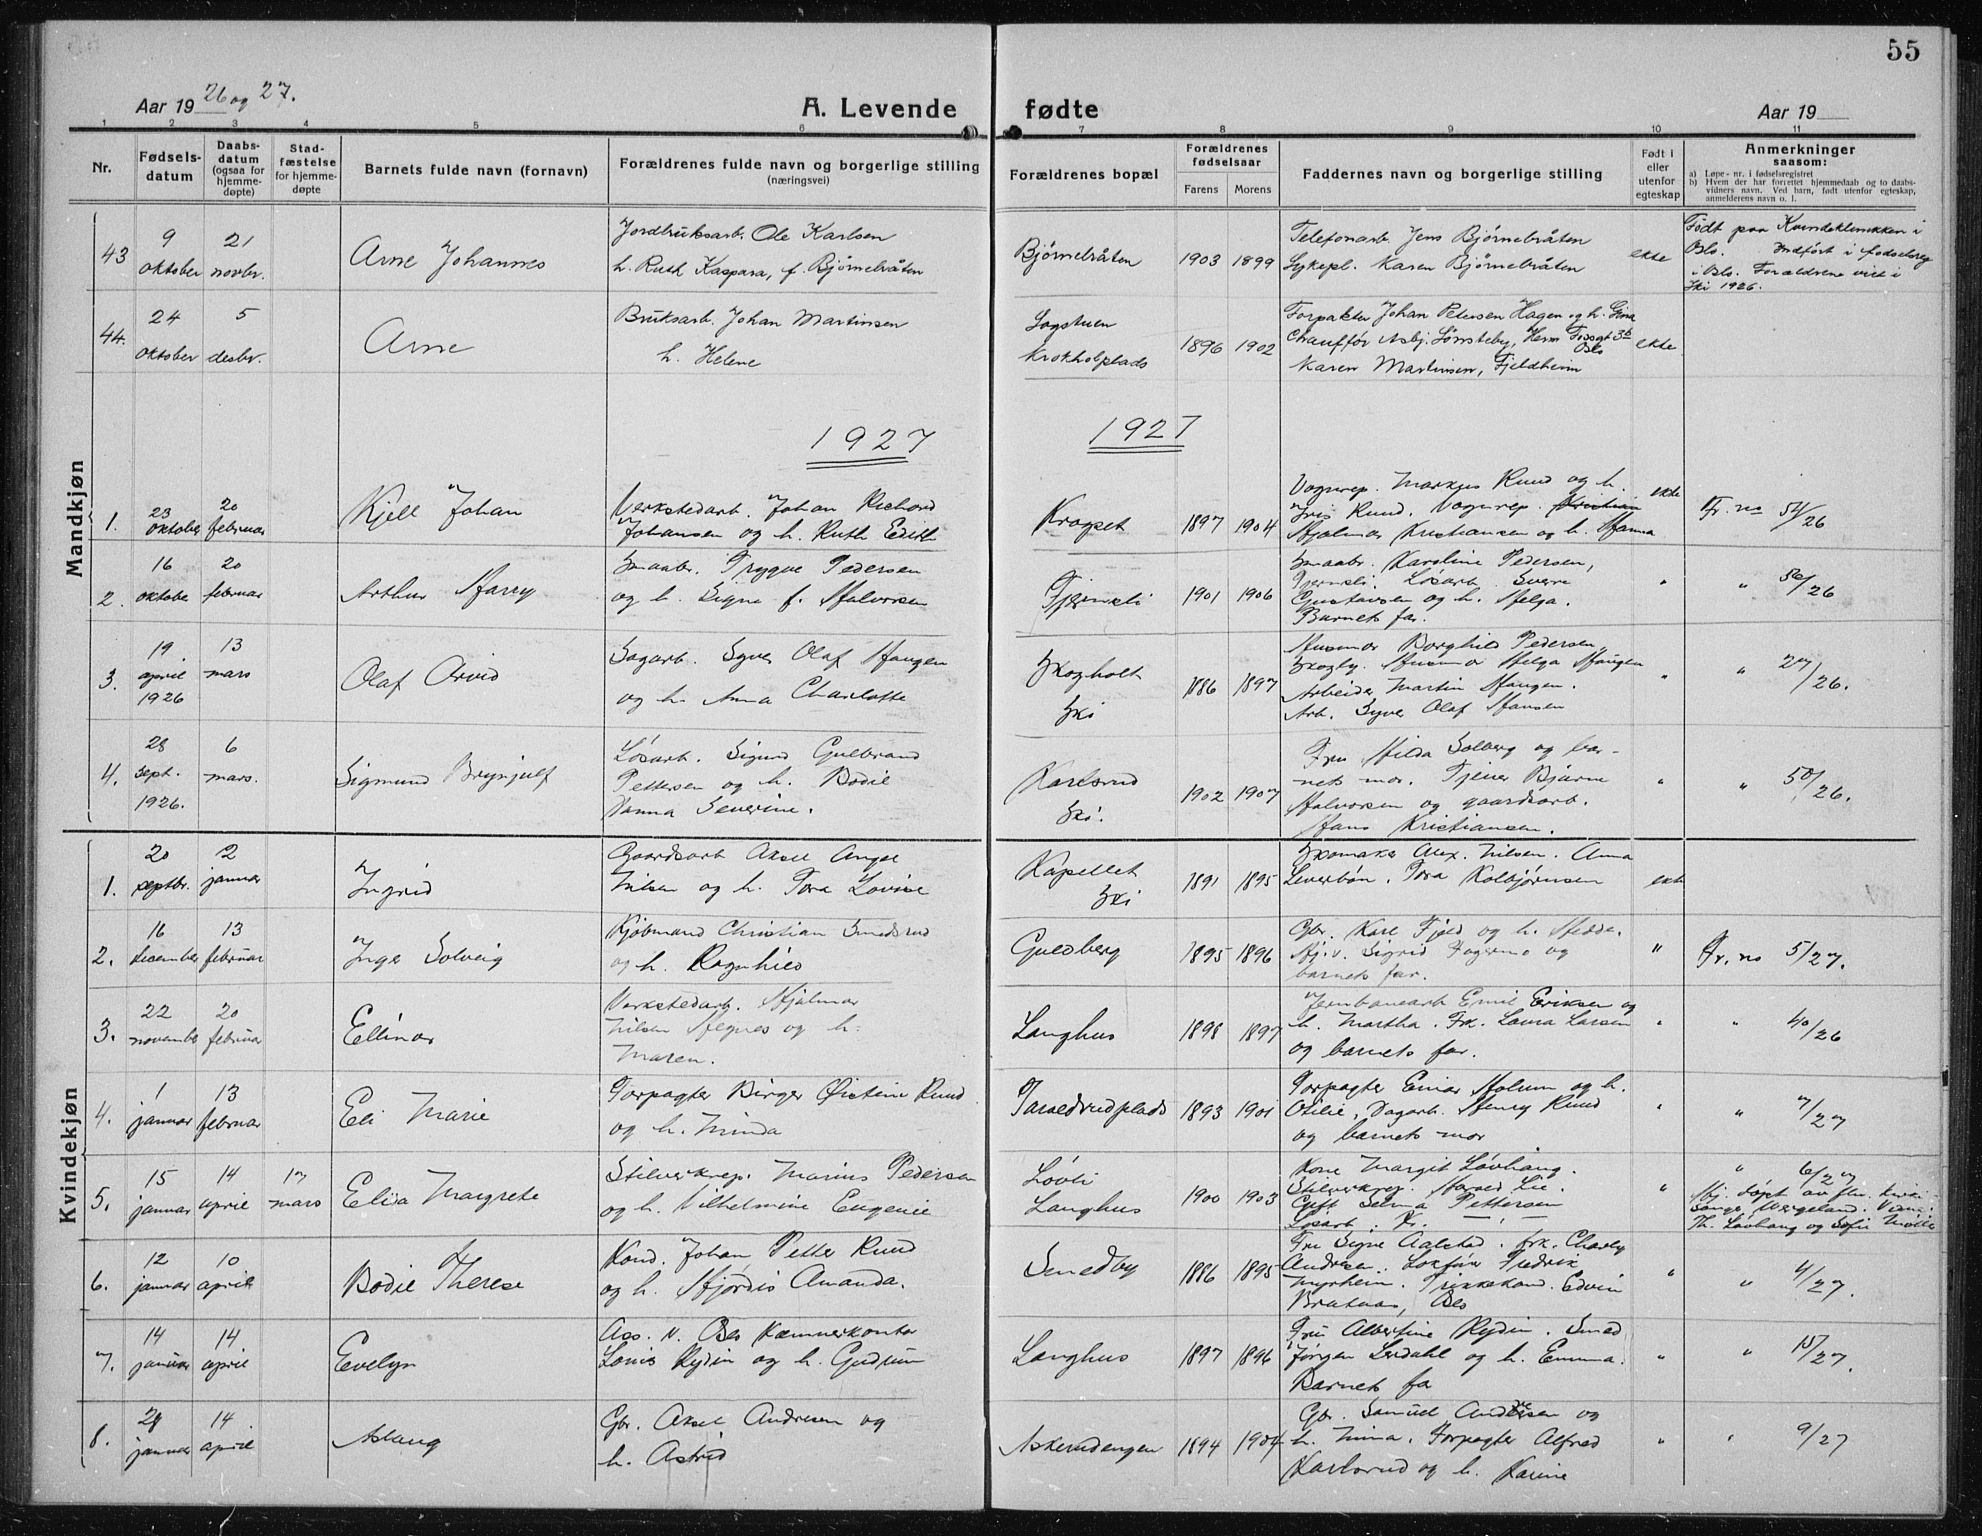 55
Aar 19 26 og 27.
A. Levende fødte
Aar 19
1 2 3 4 5 6 7 8 9 10 11
Nr.
Fødsels-datum
Daabs-datum (ogsaa for hjemme-døpte)
Stad-fæstelse for hjemme-døpte
Barnets fulde navn (fornavn)
Forældrenes fulde navn og borgerlige stilling
(næringsvei)
Forældrenes bopæl
Forældrenes fødselsaar
Farens Morens
Faddernes navn og borgerlige stilling
Født i eller utenfor egteskap
Anmerkninger
saasom:
a) Løpe-nr. i fødselsregistret
b) Hvem der har forrettet hjemmedaab og to daabs-
vidners navn. Ved barn, født utenfor egteskap,
anmelderens navn o. l.
Mandkjøn
43
9 oktober
21 novbr.
Arne Johannes
Jordbruksarb. Ole Karlsen
h. Ruth Kaspara, f. Bjørnebråten
Bjørnebråten
1903 1899
Telefonarb. Jens Bjørnebråten
Sykepl. Karen Bjørnebråten
ekte
Født paa Kvindeklinikken i
Oslo. Indført i fødselsreg
i Oslo. Forældrene viet i
Ski 1926.
44.
24 oktober
5 desbr.
Arne
Bruksarb. Johan Martinsen
h. Helene
Sagstuen
Krokholplads
1896 1902
Forpakter Johan Petersen Hagen og h. Gina
Chauffør Asbj. Sønsteby, Herm Fossgt 3b
Oslo
Karen Martinsen, Fjeldheim
ekte
1927
1927
1.
23 oktober
20 februar
Kjell Johan
Verkstedarb. Johan Richard
Johansen og h. Ruth Edith
Krogset
1897 1904
Vognrep. Markus Ruud og h.
Iris Ruud. Vognrep. Kristian
Hjalmar Kristiansen og h. Hanna
ekte
Fr. no 54/26
2.
16 oktobe
20 februar
Arthur Harry
Smaabr. Trygve Pedersen
og h. Signe f. Halvorsen
Tjernsli
1901 1906
Smaabr. Karoline Pedersen,
Tjernsli. Løsarb. Sverre
Gustavsen og h. Helga.
Barnets far.
"
" 56/26
3.
19 april 1926
13 mars
Olaf Arvid
Sagarb. Syver Olaf Haugen
og h. Anna Charlotte
Skogholt
Ski
1886 1897
Husmor Borghild Pedersen
Skogly. Husmor Helga Haugen
Arbeider Martin Haugen.
Arb. Syver Olaf Hansen
"
" 27/26.
4.
28 sept. 1926.
6 mars.
Sigmund Brynjulf
Løsarb. Sigurd Gulbrand
Pettersen og h. Bodil
Nanna Severine.
Karlsrud
Ski.
1902 1907
Fru Hilda Solberg og bar-
nets mor. Tjener Bjarne
Halvorsen og gaardsarb.
Hans Kristiansen.
"
" 50/26.
Kvindekjøn
1.
20 septbr.
2 januar
Ingrid
Gaardsarb Aksel Angel
Nilsen og h. Tora Lovise
Kapellet
Ski
1891 1895
Skomaker Alex. Nilsen. Anna
Leverbøn. Tora Kolbjørnsen
ekte
2.
16 december
13 februar
Inger Solveig
Kjøbmand Christian Smedsrud
og h. Ragnhild
Guldberg
1895 1896
Gbr. Karl Fjeld og h. Hedda.
Hj.v. Sigrid Fagermo og
barnets far.
"
Fr. no 5/27.
3.
22 november
20 februar
Ellinor
Verkstedarb. Hjalmar
Nilsen Hegnes og h.
Maren.
Langhus
1898 1897
Jernbanearb Emil Eriksen og
h. Martha. Frk. Laura Larsen
og barnets far.
"
" 40/26
4.
1 januar
13 februar
Eli Marie
Forpagter Birger Øistein Ruud
og h. Minda
Taraldrudplads
1893 1901
Forpagter Einar Holum og h.
Otilie, Dagarb. Henry Ruud
og barnets mor
"
" 7/27
5.
15 januar
14 april
17 mars
Elsa Margrete
Stilverksrep. Marius Pedersen
og h. Vilhelmine Eugenie
Løvli
Langhus
1900 1903
Kone Margit Løvhaug.
Stilverksrep. Harald Lie.
Gift Selma Pettersen
Løsarb. Kr. — ! —
"
" 6/27
Hj. døpt av
Sanger Wergeland.
Th. Løvhaug og Sofie
6.
12 januar
10 april
Bodil Therese
Kond. Johan Petter Ruud
og h. Hjørdis Amanda.
Smedby
1886 1895
Fru Signe Aalstad. frk. Charly
Andresen. Lokfør Fredrik
Myrheim. Trikkekond. Edvin
Brataas, Oslo
"
" 4/27.
7.
14 januar
14 april
Evelyn
Ass. v. Oslo Kæmnerkontor
Louis Rydin og h. Gudrun
Langhus
1897 1896
Fru Albertine Rydin. Smed
Jørgen Lerdahl og h. Emma.
Barnets far
"
" 15/27.
8.
28 januar
14 april
Aslaug
Gbr. Aksel Andresen og
h. Astrid
Askerudengen
1894 1904
Gbr. Samuel Andresen og
h. Nina. Forpagter Alfred
Karlsrud og h. Karine
"
" 9/27